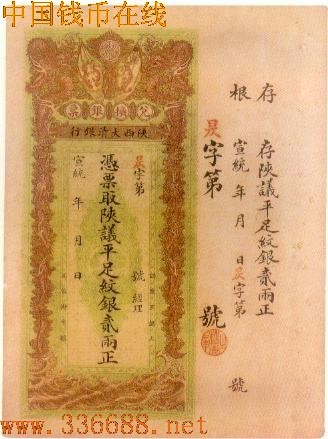 中国钱币在线
兌換銀票
陝西大清銀行
字第
號 經理
憑票取陝議平足紋銀貳兩正
宣統 年 月 日
字第 號
存根
存陝議平足紋銀貳兩正
宣統 年 月 日 字第 號
www.336688.net